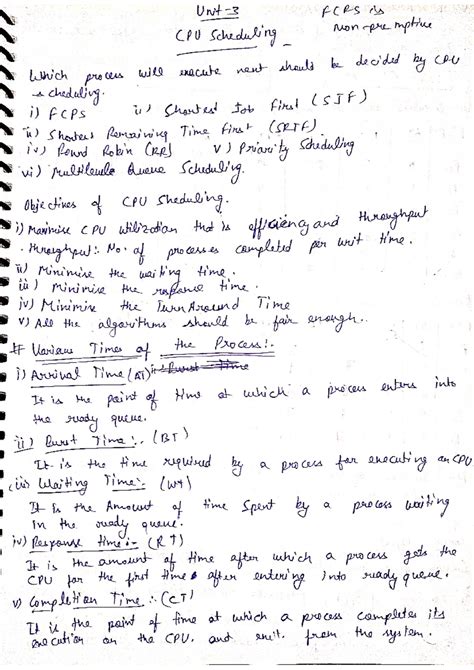 Unit-3
FCPS is
Non-premptive
CPU Scheduling
Which process will execute next should be decided by CPU
scheduling.
i) FCPS ii) Shortest Job First (SJF)
iii) Shortest Remaining Time First (SRTF)
iv) Round Robin (RR) v) Priority Scheduling
vi) Multilevele Queue Scheduling.
Objectives of CPU Sheduling.
i) Maximise CPU utilization that is efficiency and throughput
Throughput:- No. of processes completed per unit time.
ii) Minimise the waiting time.
iii) Minimise the response time.
iv) Minimise the Turn Around Time
v) All the algorithms should be fair enough.
# Various Times of the Process:-
i) Arrival Time (AT)
It is the point of time at which a process enters into
the ready queue.
ii) Burst Time:- (BT)
It is the time required by a process for executing on CPU
iii) Waiting Time:- (WT)
It Is the Amount of time Spent by a process waiting
In the ready queue.
iv) Response time:- (RT)
It is the amount of time after which a process gets the
CPU for the first time after entering into ready queue.
v) Completion Time:- (CT)
It is the point of time at which a process completes its
execution on the CPU, and exit from the system.